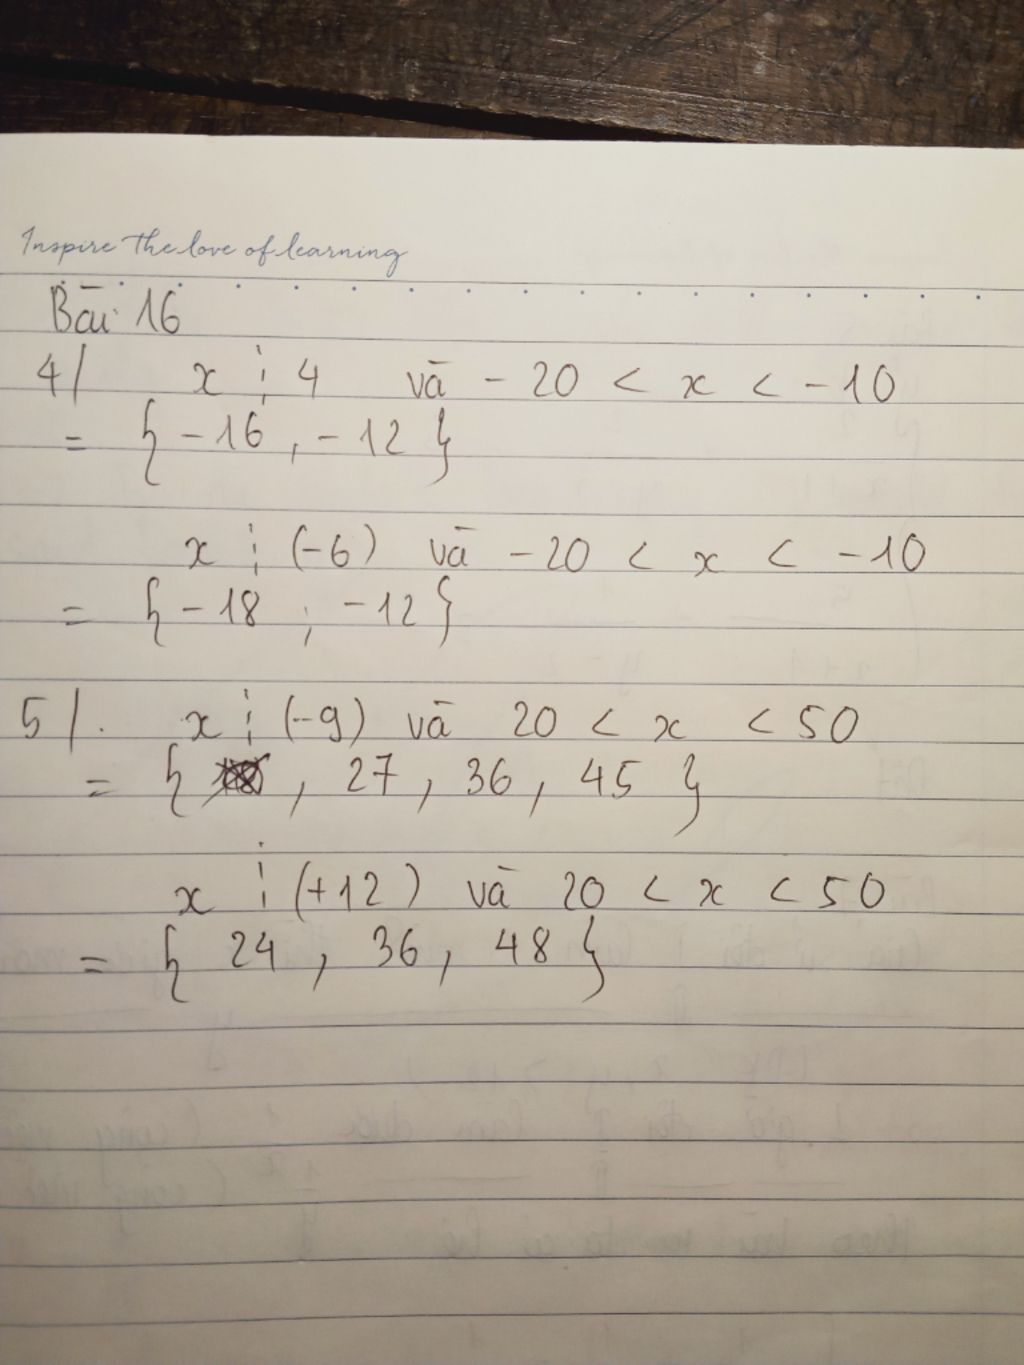 Inspire the love of learning
Bài 16
4/ x ⋮ 4 và - 20 < x < - 10
= { - 16 , - 12 }
x ⋮ (-6) và - 20 < x < - 10
= { - 18 ; - 12 }
5/. x ⋮ (-9) và 20 < x < 50
= { , 27 , 36 , 45 }
x ⋮ (+12) và 20 < x < 50
= { 24 , 36 , 48 }